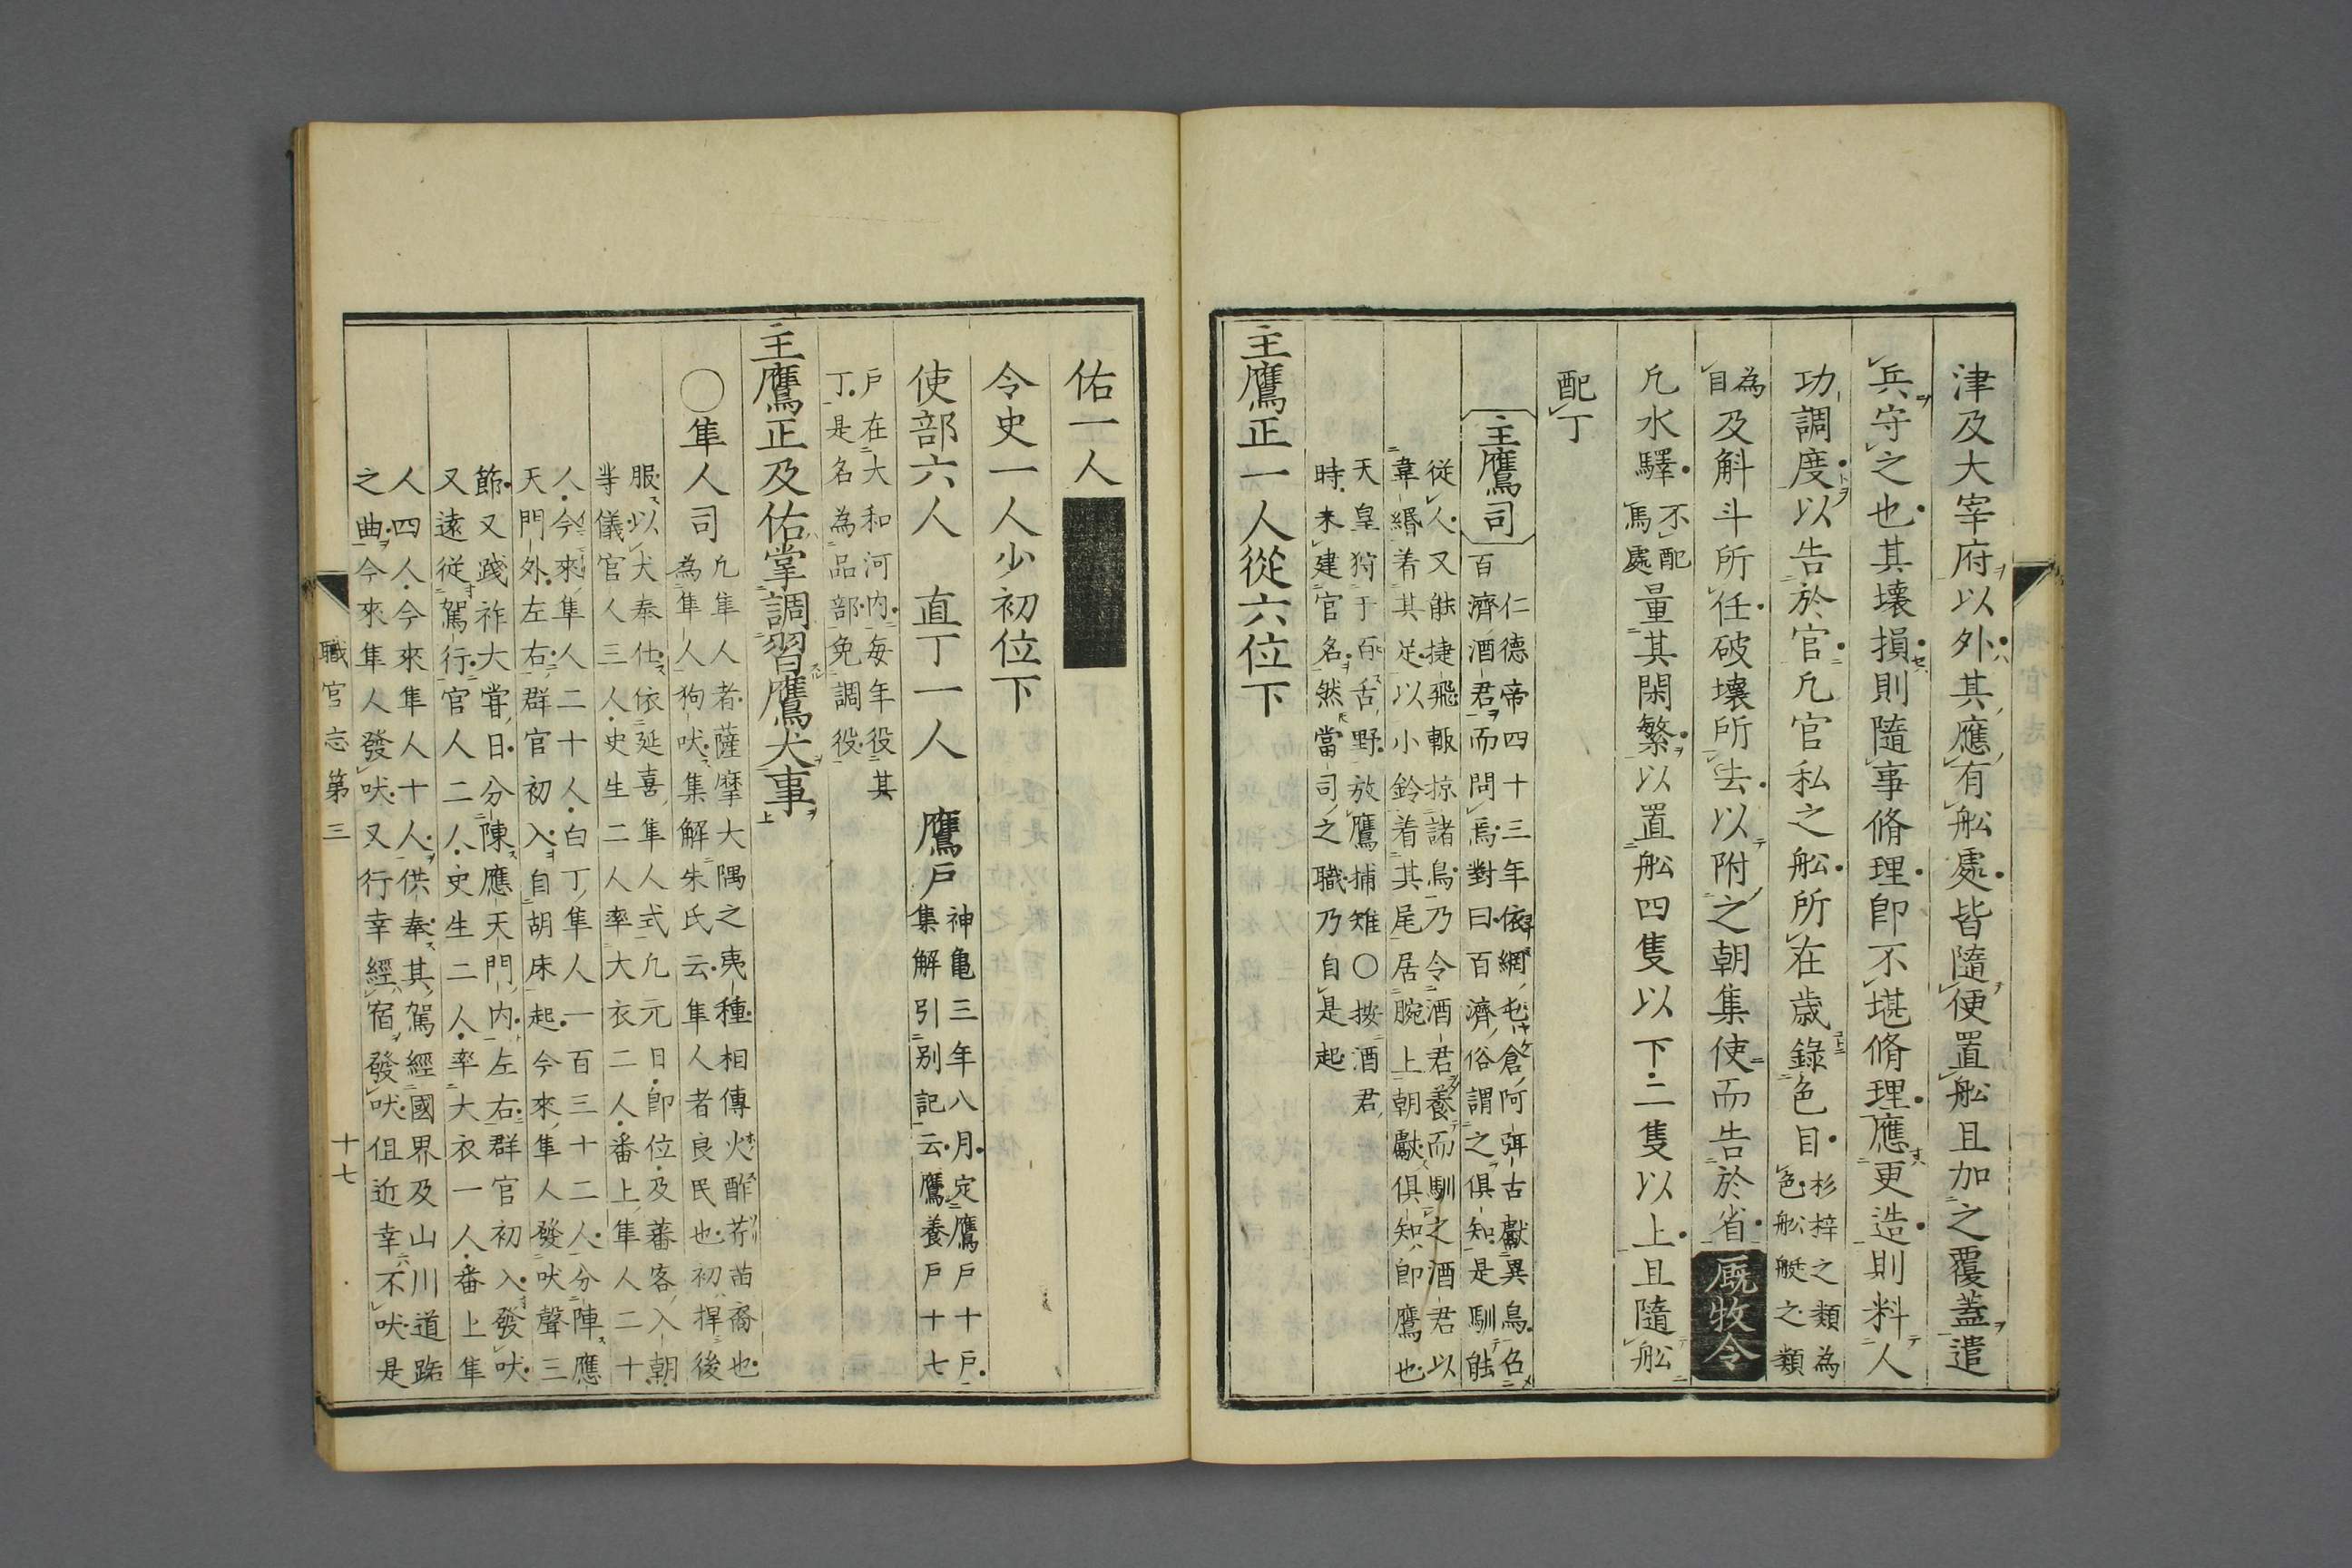 津及大宰府以外其應有舩處皆隨便置舩且加之覆蓋遣
兵守之也其壞損則隨事脩理即不堪脩理應更造則料人
功調度以告於官凡官私之舩所在歳錄色目杉梓之類為
色舩艇之類
為
目及斛斗所任破壞所去以附之朝集使而告於省厩牧令
凡水驛不配
馬處量其閑繁以置舩四隻以下二隻以上且隨舩
配丁
主鷹司
仁德帝四十三年依網屯倉阿弭古獻異鳥召
百濟酒君而問焉對曰百濟俗謂之俱知是馴能
從人又能捷飛輙掠諸鳥乃令酒君養而馴之酒君以
韋緡着其足以小鈴着其尾居腕上朝獻俱知即鷹也
天皇狩于百舌野放鷹捕雉○按酒君
時未建官名然當司之職乃自是起
主鷹正一人從六位下
佑一人
令史一人少初位下
使部六人　直丁一人　鷹戸
神亀三年八月定鷹戸十戸
集解引别記云鷹養戸十七
戸在大和河内每年役其
丁是名為品部免調役
主鷹正及佑掌調習鷹犬事
○隼人司
凡隼人者薩摩大隅之夷種相傳火酢芹苗裔也
為隼人狗吠集解朱氏云隼人者良民也初捍後
服以犬奉仕依延喜隼人式凡元日即位及蕃客入朝
等儀官人三人史生二人率大衣二人番上隼人二十
人今來隼人二十人白丁隼人一百三十二人分陣應
天門外左右群官初入自胡床起今來隼人發吠聲三
節又踐祚大甞日分陳應天門内左右群官初入發吠
又遠從駕行官人二人史生二人率大衣一人番上隼
人四人今來隼人十人供奉其駕經國界及山川道路
之曲今來隼人發吠又行幸經宿發吠但近幸不吠是
職官志第三
十七